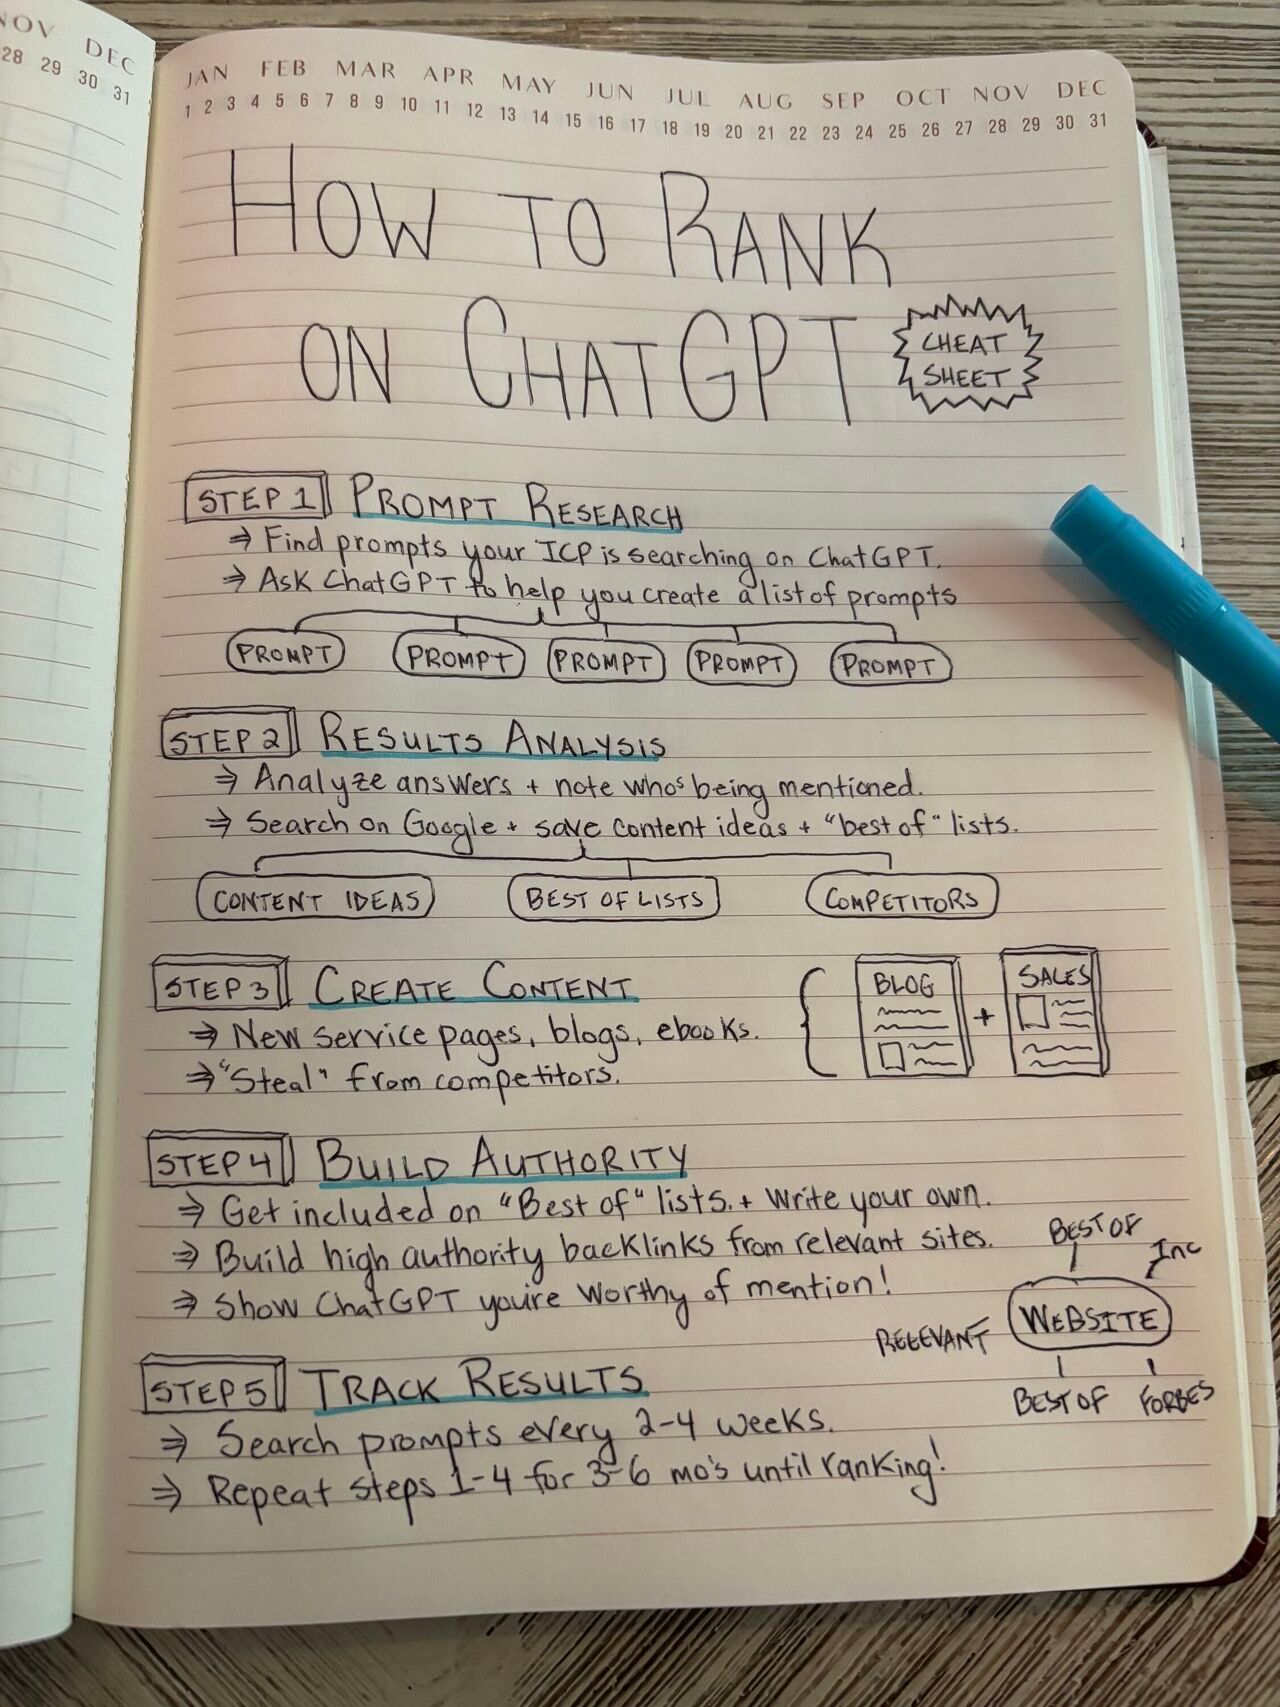 NOV DEC
28 29 30 31
JAN FEB MAR APR MAY JUN JUL AUG SEP OCT NOV DEC
1 2 3 4 5 6 7 8 9 10 11 12 13 14 15 16 17 18 19 20 21 22 23 24 25 26 27 28 29 30 31
HOW TO RANK
ON CHATGPT
CHEAT
SHEET
STEP 1 PROMPT RESEARCH
⇒ Find prompts your ICP is searching on ChatGPT.
⇒ Ask ChatGPT to help you create a list of prompts
PROMPT PROMPT PROMPT PROMPT PROMPT
STEP 2 RESULTS ANALYSIS
⇒ Analyze answers + note who's being mentioned.
⇒ Search on Google + save content ideas + "best of" lists.
CONTENT IDEAS BEST OF LISTS COMPETITORS
STEP 3 CREATE CONTENT
⇒ New service pages, blogs, ebooks.
⇒ "Steal" from competitors.
BLOG + SALES
STEP 4 BUILD AUTHORITY
⇒ Get included on "Best of" lists. + write your own.
⇒ Build high authority backlinks from relevant sites.
⇒ Show ChatGPT you're worthy of mention!
BEST OF
Inc
WEBSITE
RELEVANT
BEST OF
FORBES
STEP 5 TRACK RESULTS
⇒ Search prompts every 2-4 weeks.
⇒ Repeat steps 1-4 for 3-6 mo's until ranking!